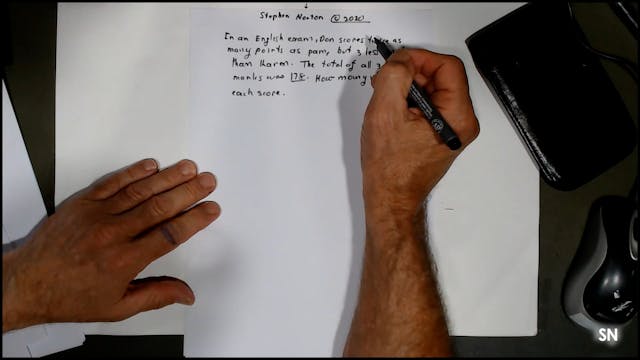 Stephen Newton © 2020
In an English exam, Don scores as
many points as pam, but 3 les
than Tharm. The total of all 3
marks was 178. How many
each score.
SN